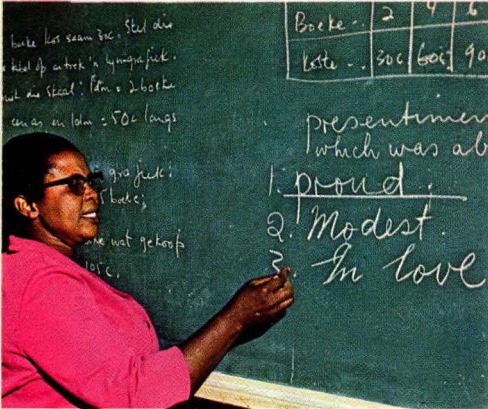 boeke kos saam 30c. Stel die
tabel op en trek 'n lyngrafiek.
die skaal: 1dm = 2 boeke
en as en 1dm = 50c langs
grafiek:
5 boeke;
wat gekoop
105c.
Boeke .. 2 4 6
Koste .. 30c 60c 90
presentimen
which was ab
1. proud.
2. Modest.
3. In love